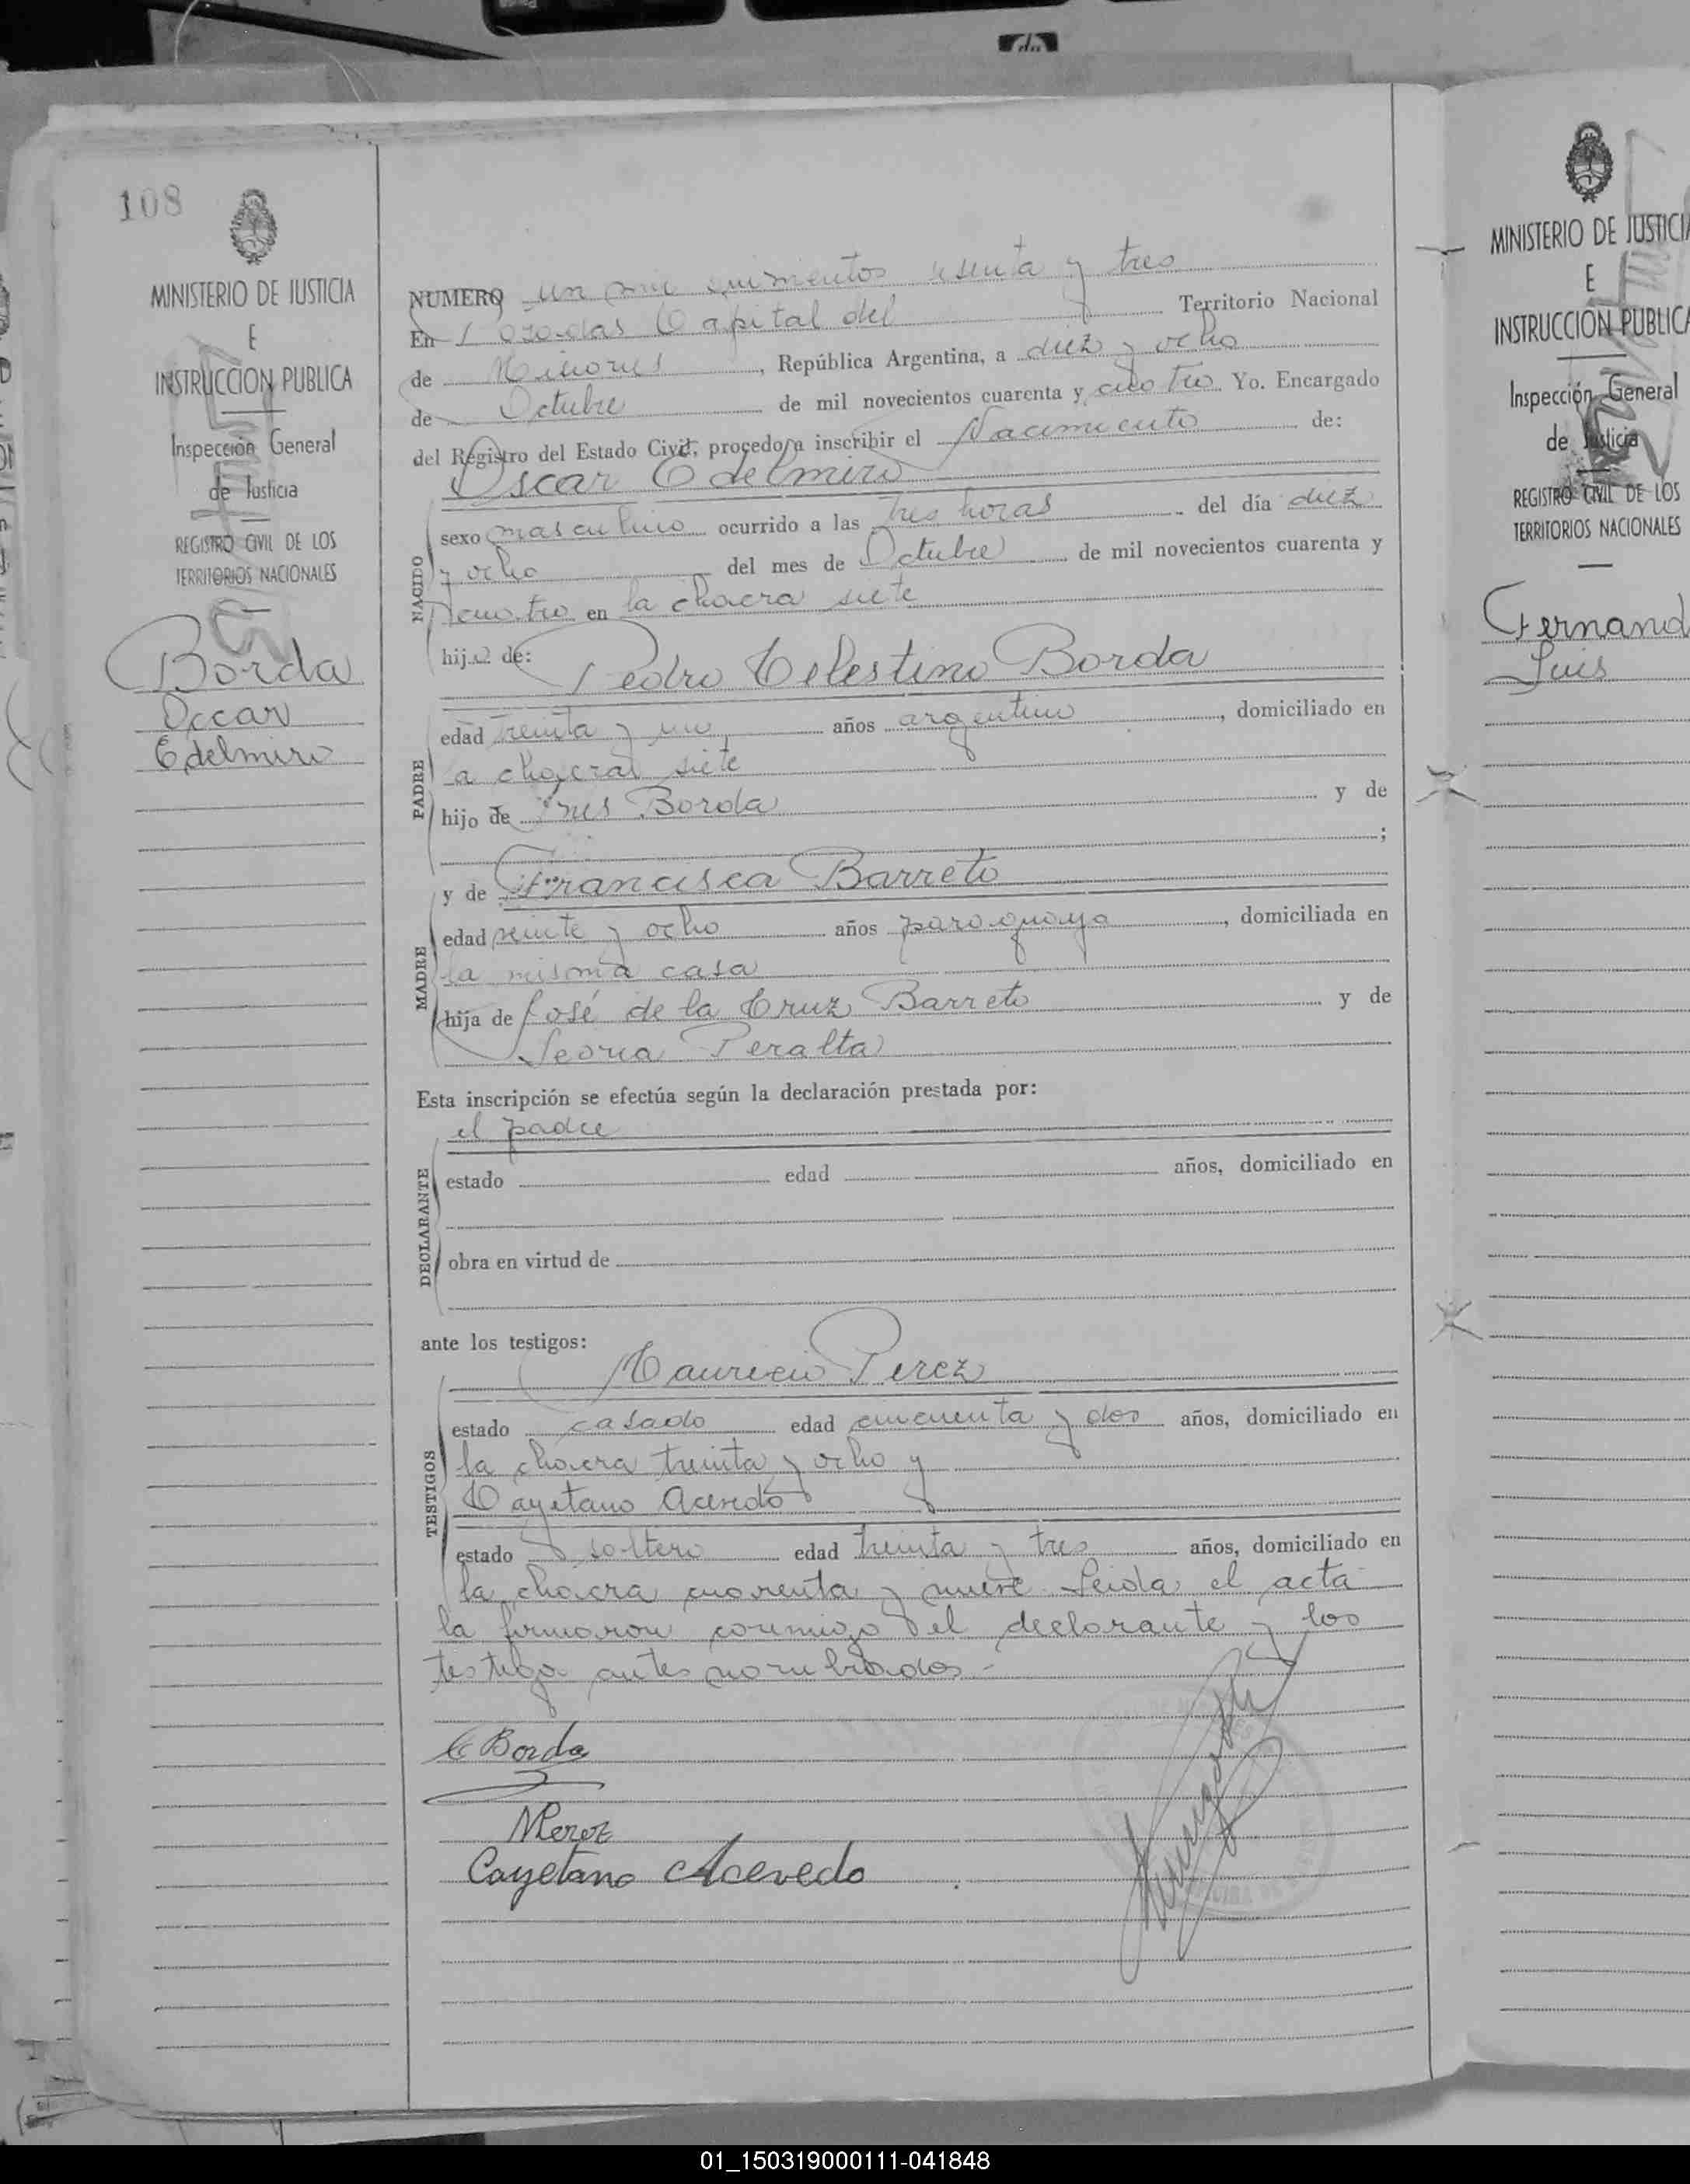 108
MINISTERIO DE JUSTICIA
E
INSTRUCCION PUBLICA
Inspección General
de Justicia
REGISTRO CIVIL DE LOS
TERRITORIOS NACIONALES
Borda
Occar
Edelmiro
NUMERO un mil quinientos sesenta y tres
En Posadas Capital del Territorio Nacional
de Misiones, República Argentina, a diez y ocho
de Octubre de mil novecientos cuarenta y cuatro Yo. Encargado
del Registro del Estado Civil, procedo a inscribir el Nacimiento de:
Oscar Edelmiro
sexo masculino ocurrido a las tres horas del día diez
y ocho del mes de Octubre de mil novecientos cuarenta y
cuatro en la chacra siete
NACIDO
hijo de: Pedro Celestino Borda
edad treinta y un años argentino, domiciliado en
la chacra siete
PADRE
hijo de Ines Borda y de
;
y de Francisca Barreto
edad veinte y ocho años paraguaya, domiciliada en
la misma casa
MADRE
hija de José de la Cruz Barreto y de
Peralta
Esta inscripción se efectúa según la declaración prestada por:
el padre
estado edad años, domiciliado en
DECLARANTE
obra en virtud de
ante los testigos:
Mauricio Perez
estado casado edad cincuenta y dos años, domiciliado en
la chacra treinta y ocho y
TESTIGOS
Cayetano Acevedo
estado soltero edad treinta y tres años, domiciliado en
la chacra cuarenta y nueve Leida el acta
la firmaron conmigo el declarante y los
testigos antes nombrados.-
Borda
MPerez
Cayetano Acevedo
MINISTERIO DE JUSTICIA
E
INSTRUCCION PUBLICA
Inspección General
de Justicia
REGISTRO CIVIL DE LOS
TERRITORIOS NACIONALES
Fernand
Luis
01_150319000111-041848